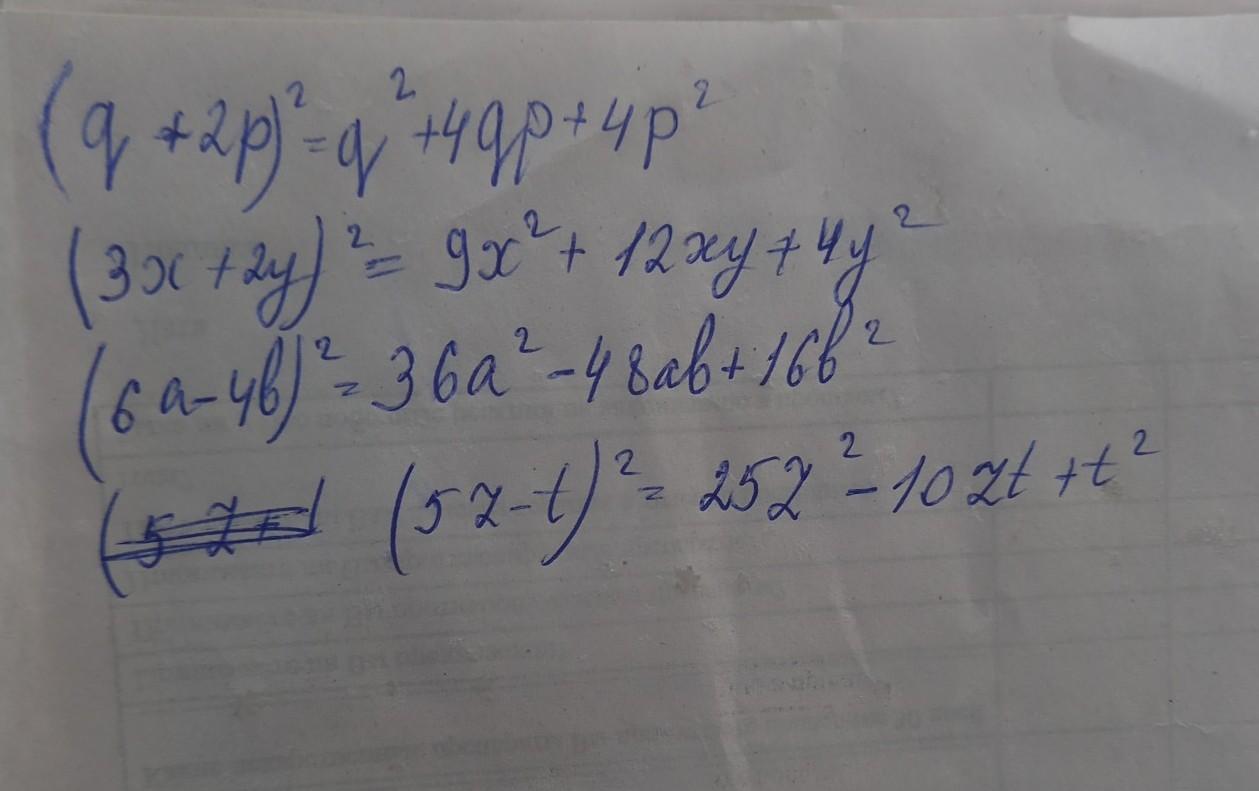 (q + 2p)² = q² + 4qp + 4p²
(3x + 2y)² = 9x² + 12xy + 4y²
(6a - 4b)² = 36a² - 48ab + 16b²
(5z - t)² = 25z² - 10zt + t²